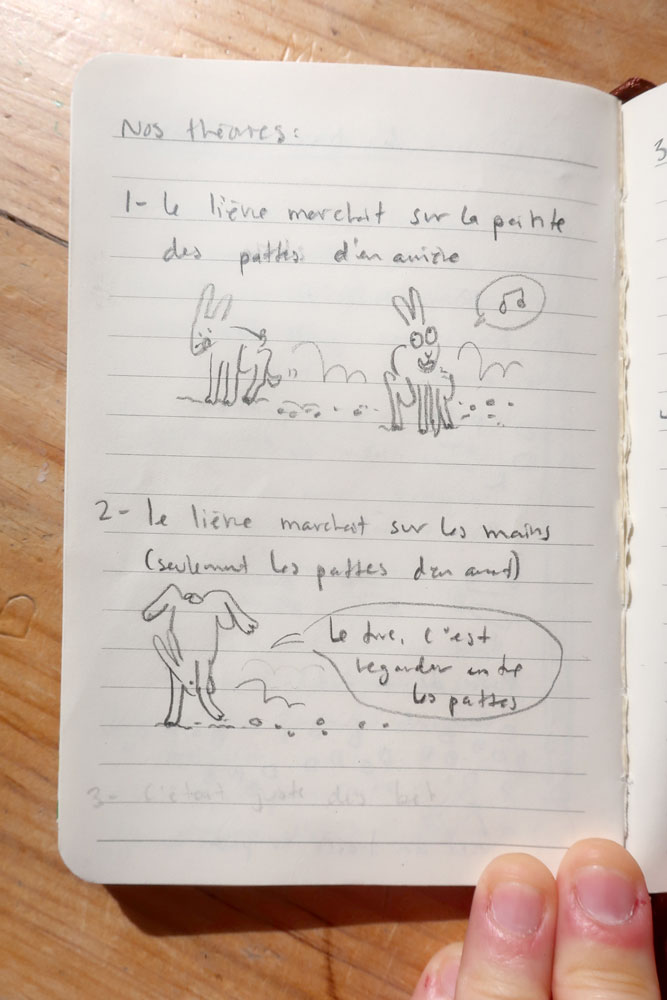 Nos théories:
1- le lièvre marchait sur la pointe
des pattes d'en arrière
2- le lièvre marchait sur les mains
(seulement les pattes d'en avant)
Le truc, c'est
regarder entre
les pattes
3- c'était juste des bet
3